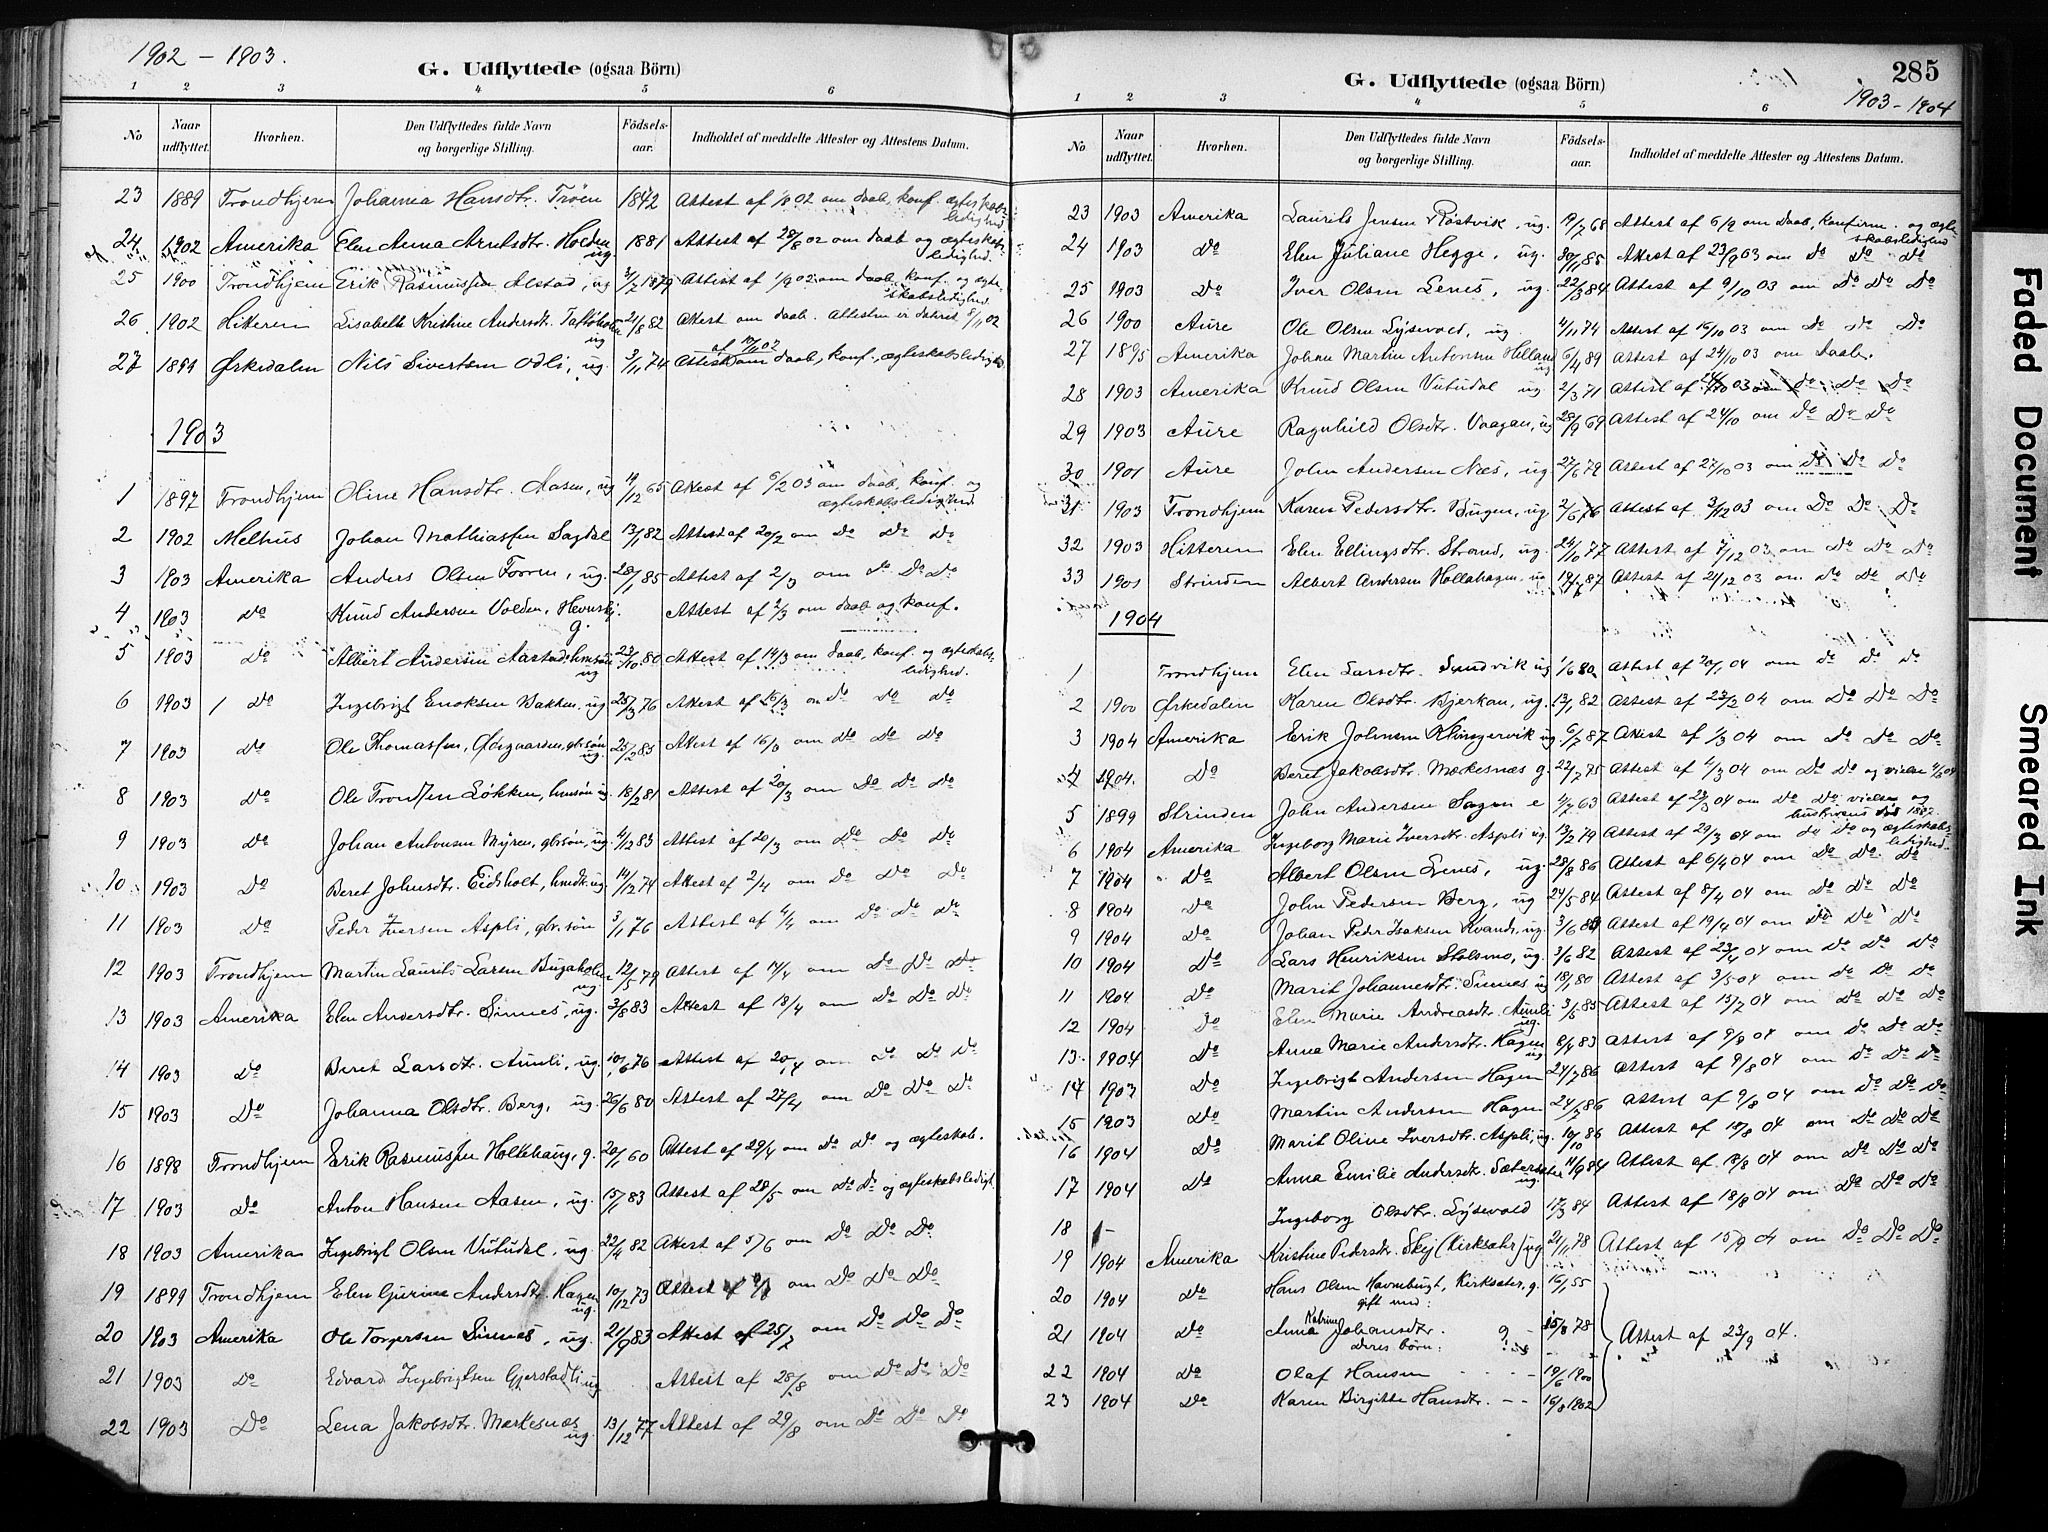 1902 - 1903.
G. Udflyttede (ogsaa Börn)
1 2 3 4 5 6
No Naar udflyttet. Hvorhen. Den Udflyttedes fulde Navn og borgerlige Stilling. Födsels-aar. Indholdet af meddelte Attester og Attestens Datum.
23 1889 Trondhjem Johanna Hansdtr. Trøen 1842 Attest af 1/8 02 om daab, konf. ægteskabsledighed
24 1902 Amerika Elen Anna Arntsdtr. Holden ug. 1881 Attest af 28/8 02 om daab og ægteskabsledighed.
25 1900 Trondhjem Erik Rasmussen Alstad, ug 3/7 1879 Attest af 1/9 02 om daab, konf. og ægteskabsledighed.
26 1902 Hitteren Lisabeth Kristine Andersdt. ug 21/8 82 Attest om daab. Attesten er dateret 8/11 02
27 1899 Ørkedalen Nils Sivertsen Odli, ug. 3/11 74 Attest om daab, konf., ægteskabsledighed.
1903
1 1897 Trondhjem Oline Hansdtr. Aasen, ug 14/12 65 Attest af 6/2 03 om daab, konf. og ægteskabsledighed.
2 1902 Melhus Johan Mathiassen Sagdal 13/1 82 Attest af 20/2 om Do Do Do
3 1903 Amerika Anders Olsen Forren, ug. 28/1 85 Attest af 2/3 om Do Do Do
4 1903 Do Knud Andersen Volden, g. Attest af 2/3 om daab og konf.
5 1903 Do Albert Andersen Aastad, hmsøn ug 23/10 80 Attest af 14/3 om Daab, konf. og ægteskabsledighed.
6 1903 Do Ingebrigt Enoksen Bakken, ug 25/3 76 Attest af 16/3 om Do Do Do
7 1903 Do Ole Thomassen, Ødegaarden, gbrsøn ug. 25/2 85 Attest af 16/3 om Do Do Do
8 1903 Do Ole Trondsen Løkken, hmsøn ug. 18/2 81 Attest af 20/3 om Do Do Do
9 1903 Do Johan Antonsen Myren, gbrsøn, ug. 4/12 83 Attest af 20/3 om Do Do Do
10 1903 Do Beret Johnsdtr. Eidsholt, hmdt. ug. 14/12 74 Attest af 2/4 om Do Do Do
11 1903 Do Peder Iversen Aspli, gbr.søn 3/1 76 Attest af 4/4 om Do Do Do
12 1903 Trondhjem Martin Laurits Larsen ug. 12/5 79 Attest af 14/4 om Do Do Do
13 1903 Amerika Elen Andersdtr. Sinnes, ug. 3/8 83 Attest af 18/4 om Do Do Do
14 1903 Do Beret Larsdtr. Aunli, ug. 10/6 76 Attest af 20/4 om Do Do Do
15 1903 Do Johanna Olsdtr. Berg, ug. 26/6 80 Attest af 27/4 om Do Do Do
16 1898 Trondhjem Erik Rasmussen Holtehaug, g. 20/1 60 Attest af 29/4 om Do Do og ægteskab.
17 1903 Do Anton Hansen Aasen, ug. 15/1 83 Attest af 28/5 om Do Do og ægteskabsledigh.
18 1903 Amerika Ingebrigt Olsen Vutudal, ug. 22/4 82 Attest af 5/6 om Do Do Do
19 1899 Trondhjem Elen Gurine Andersdtr. Hagen ug. 10/12 73 Attest af om Do Do Do
20 1903 Amerika Ole Torgersen Sinnes, ug. 21/9 83 Attest af 25/7 om Do Do Do
21 1903 Do Edvard Ingebrigtsen Gjerstadli ug Attest af 28/8 om Do Do Do
22 1903 Do Lena Jakobsdtr. Mærkesnæs ug. 13/12 77 Attest af 29/8 om Do Do Do
G. Udflyttede (ogsaa Börn)
285
1903 - 1904
1 2 3 4 5 6
No. Naar udflyttet. Hvorhen. Den Udflyttedes fulde Navn og borgerlige Stilling. Födsels-aar. Indholdet af meddelte Attester og Attestens Datum.
23 1903 Amerika Laurits Jensen Røstvik, ug. 19/7 68 Attest af 6/9 om Daab, konfirm. og ægteskabsledighed
24 1903 Do Elen Juliane Hegge, ug. 30/1 85 Attest af 23/9 03 om Do Do Do
25 1903 Do Iver Olsen Lenes, ug. 22/3 84 Attest af 9/10 03 om Do Do Do
26 1900 Aure Ole Olsen Lysevold, ug. 4/11 74 Attest af 16/10 03 om Do Do Do
27 1895 Amerika Johan Martin Antonsen Helland ug 6/4 89 Attest af 24/10 03 om Daab.
28 1903 Amerika Knud Olsen Vutudal ug 2/3 71 Attest af 24/10 03 om Do Do Do
29 1903 Aure Ragnhild Olsdtr. Vaagan, ug 28/9 69 Attest af 24/10 om Do Do Do
30 1901 Aure John Andersen Næs, ug. 27/6 79 Attest af 27/10 03 om Do Do Do
31 1903 Trondhjem Karen Pedersdtr. Bugen, ug. 2/6 76 Attest af 3/12 03 om Do Do Do
32 1903 Hitteren Elen Ellingsdtr. Strand, ug. 24/10 77 Attest af 7/12 03 om Do Do Do
33 1901 Strinden Albert Andersen Hollahagen, ug 14/7 87 Attest af 21/12 03 om Do Do Do
1904
1 Trondhjem Elen Larsdtr. Sundvik ug 1/6 80 Attest af 20/1 04 om Do Do Do
2 1900 Ørkedalen Karen Olsdtr. Bjerkan, ug. 13/1 82 Attest af 23/2 04 om Do Do Do
3 1904 Amerika Erik Johnsen Klungervik ug 6/7 87 Attest af 1/3 04 om Do Do Do
4 1904. Do Beret Jakobsdtr. Mærkesnæs g. 22/7 75 Attest af 4/3 04 om Do Do og vielse
5 1899 Strinden John Andersen Sagen e 4/7 63 Attest af 23/3 04 om Do Do vielsen og hustruens død 1897.
6 1904 Amerika Ingeborg Marie Iversdtr. Aspli ug. 13/2 79 Attest af 29/3 04 om Do Do og ægteskabsledighed.
7 1904 Do Albert Olsen Lenes, ug. 28/8 86 Attest af 6/4 04 om Do Do Do
8 1904 Do John Pedersen Berg, ug 24/5 84 Attest af 8/4 04 om Do Do Do
9 1904 Do Johan Peder Isaksen Kvande, ug. 3/6 84 Attest af 19/4 04 om Do Do Do
10 1904 Do Lars Henriksen Stolsmo, ug. 3/6 82 Attest af 23/4 04 om Do Do Do
11 1904 Do Marit Johannesdtr. Sinnes ug 18/1 80 Attest af 3/5 04 om Do Do Do
12 1904 Do Elen Marie Andreasdtr. Aunli ug. 3/5 85 Attest af 13/7 04 om Do Do Do
13. 1904 Do Anna Marie Andersdtr. Hagen ug 8/4 83 Attest af 9/8 04 om Do Do Do
14 1903 Do Ingebrigt Andersen Hagen 24/7 86 Attest af 9/8 04 om Do Do Do
15 1903 Do Martin Andersen Hagen 24/7 86 Attest af 9/8 04 om Do Do Do
16 1904 Do Marit Oline Iversdtr. Aspli, ug. 10/10 86 Attest af 18/8 04 om Do Do Do
17 1904 Do Anna Emilie Andersdtr. ug. 11/9 84 Attest af 18/8 04 om Do Do Do
18 - Ingeborg Olsdtr. Lysevold 17/3 84 Attest af 18/8 04 om Do Do Do
19 1904 Amerika Kristine Pedersdtr. Skej (Kirksæter) ug 21/11 78 Attest af 15/9 04 om Do Do Do
20 1904 Do Hans Olsen Havnebugt, Kirksæter, g. 16/1 55
gift med:
21 1904 Do Anna Katrine Johansdtr. g - 15/8 78 Attest af 23/9 04.
Deres børn:
22 1904 Do Olaf Hansen - 19/6 1900
23 1904 Do Karen Birgitte Hansdtr. - - 16/8 1902
Faded Document
Smeared Ink